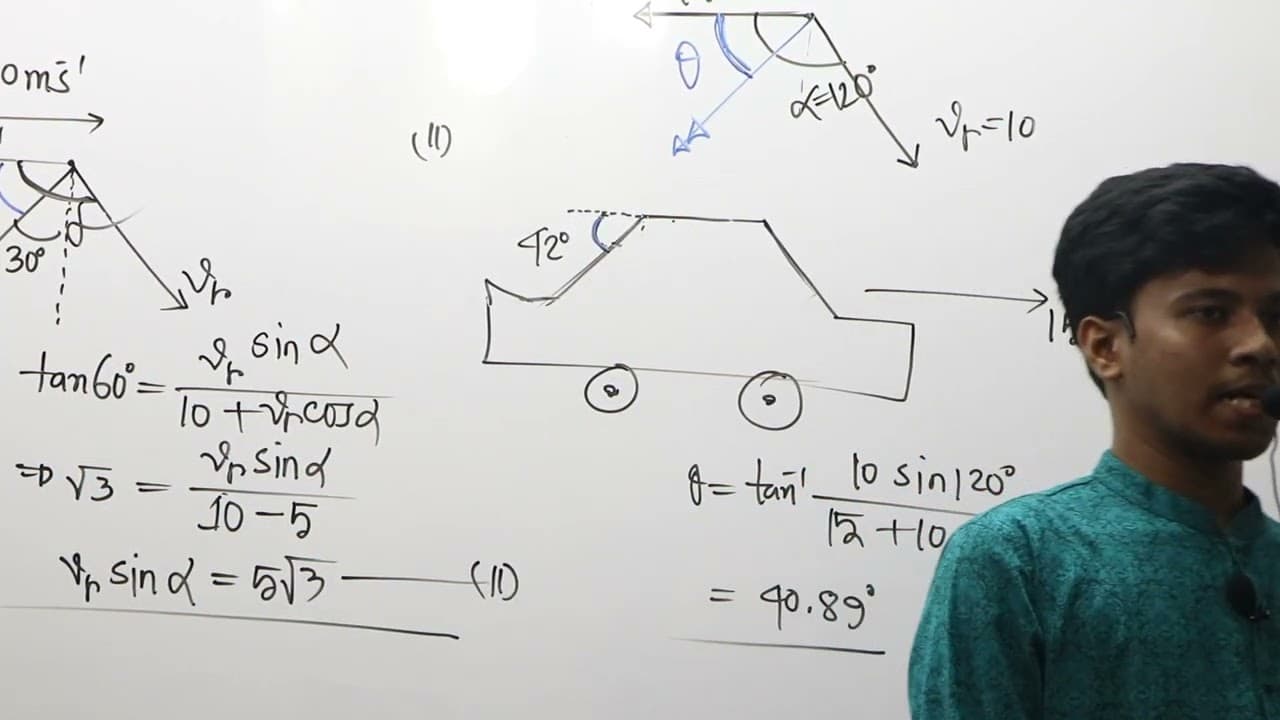 0 ms⁻¹
30°
α
v_r
tan60° = v_r sinα / 10 + v_r cosα
⇒ √3 = v_r sinα / 10 - 5
v_r sinα = 5√3 —— (II)
(II)
θ
α=120°
v_r = 10
42°
θ = tan⁻¹ 10 sin120° / 15 + 10
= 40.89°